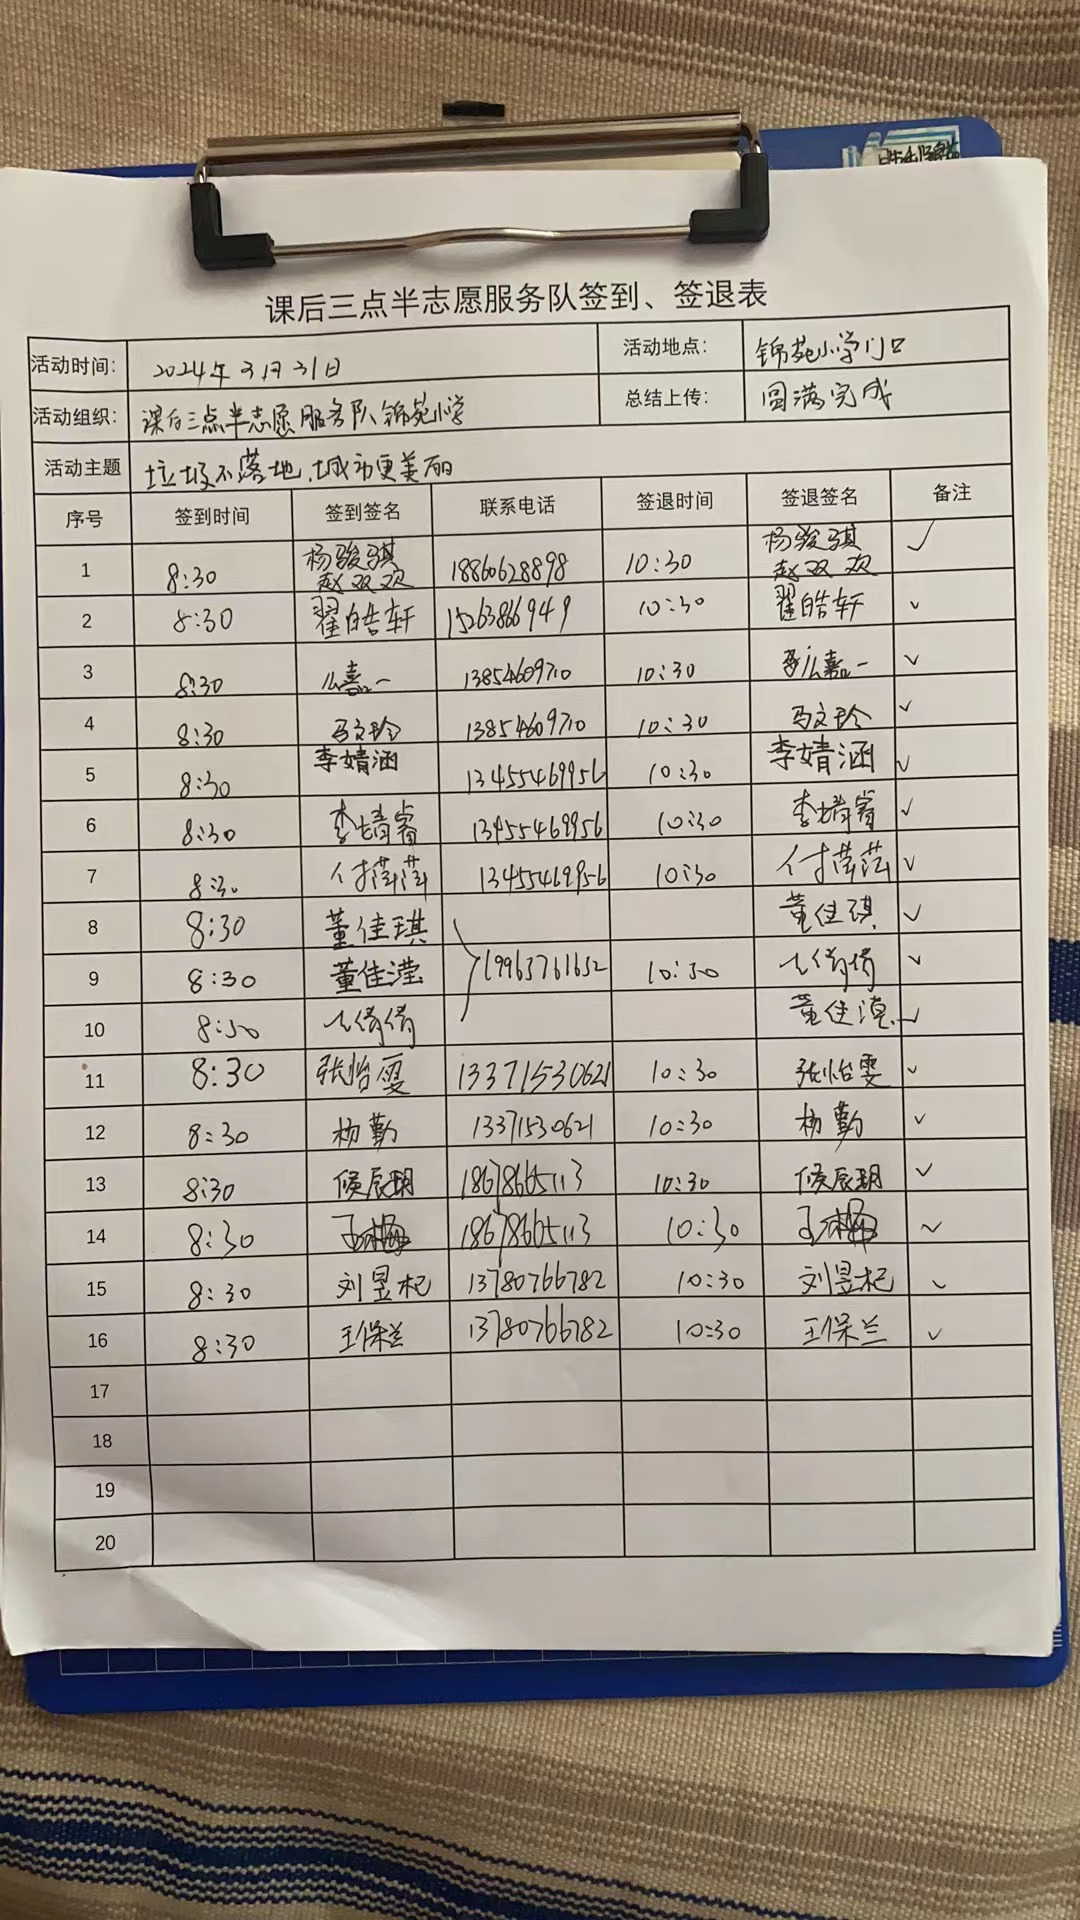 课后三点半志愿服务队签到、签退表
活动时间: 2024年3月31日 活动地点: 锦苑小学门口
活动组织: 课后三点半志愿服务队锦苑小学 总结上传: 圆满完成
活动主题 垃圾不落地,城市更美丽
序号 签到时间 签到签名 联系电话 签退时间 签退签名 备注
1 8:30 杨骏骐 赵双双 18860628898 10:30 杨骏骐 赵双双 ✓
2 8:30 翟皓轩 15263866949 10:30 翟皓轩 ✓
3 8:30 么嘉一 13854609710 10:30 么嘉一 ✓
4 8:30 马文玲 13854609710 10:30 马文玲 ✓
5 8:30 李婧涵 13455469956 10:30 李婧涵 ✓
6 8:30 李婧睿 13455469956 10:30 李婧睿 ✓
7 8:30 付萍萍 13455469956 10:30 付萍萍 ✓
8 8:30 董佳琪 董佳琪 ✓
9 8:30 董佳滢 19963761652 10:30 倩倩 ✓
10 8:30 倩倩 董佳滢 ✓
11 8:30 张怡雯 13371530621 10:30 张怡雯 ✓
12 8:30 杨勤 13371530621 10:30 杨勤 ✓
13 8:30 侯辰玥 18678665113 10:30 侯辰玥 ✓
14 8:30 18678665113 10:30 ✓
15 8:30 刘昱杞 13780766782 10:30 刘昱杞 ✓
16 8:30 王保兰 13780766782 10:30 王保兰 ✓
17
18
19
20